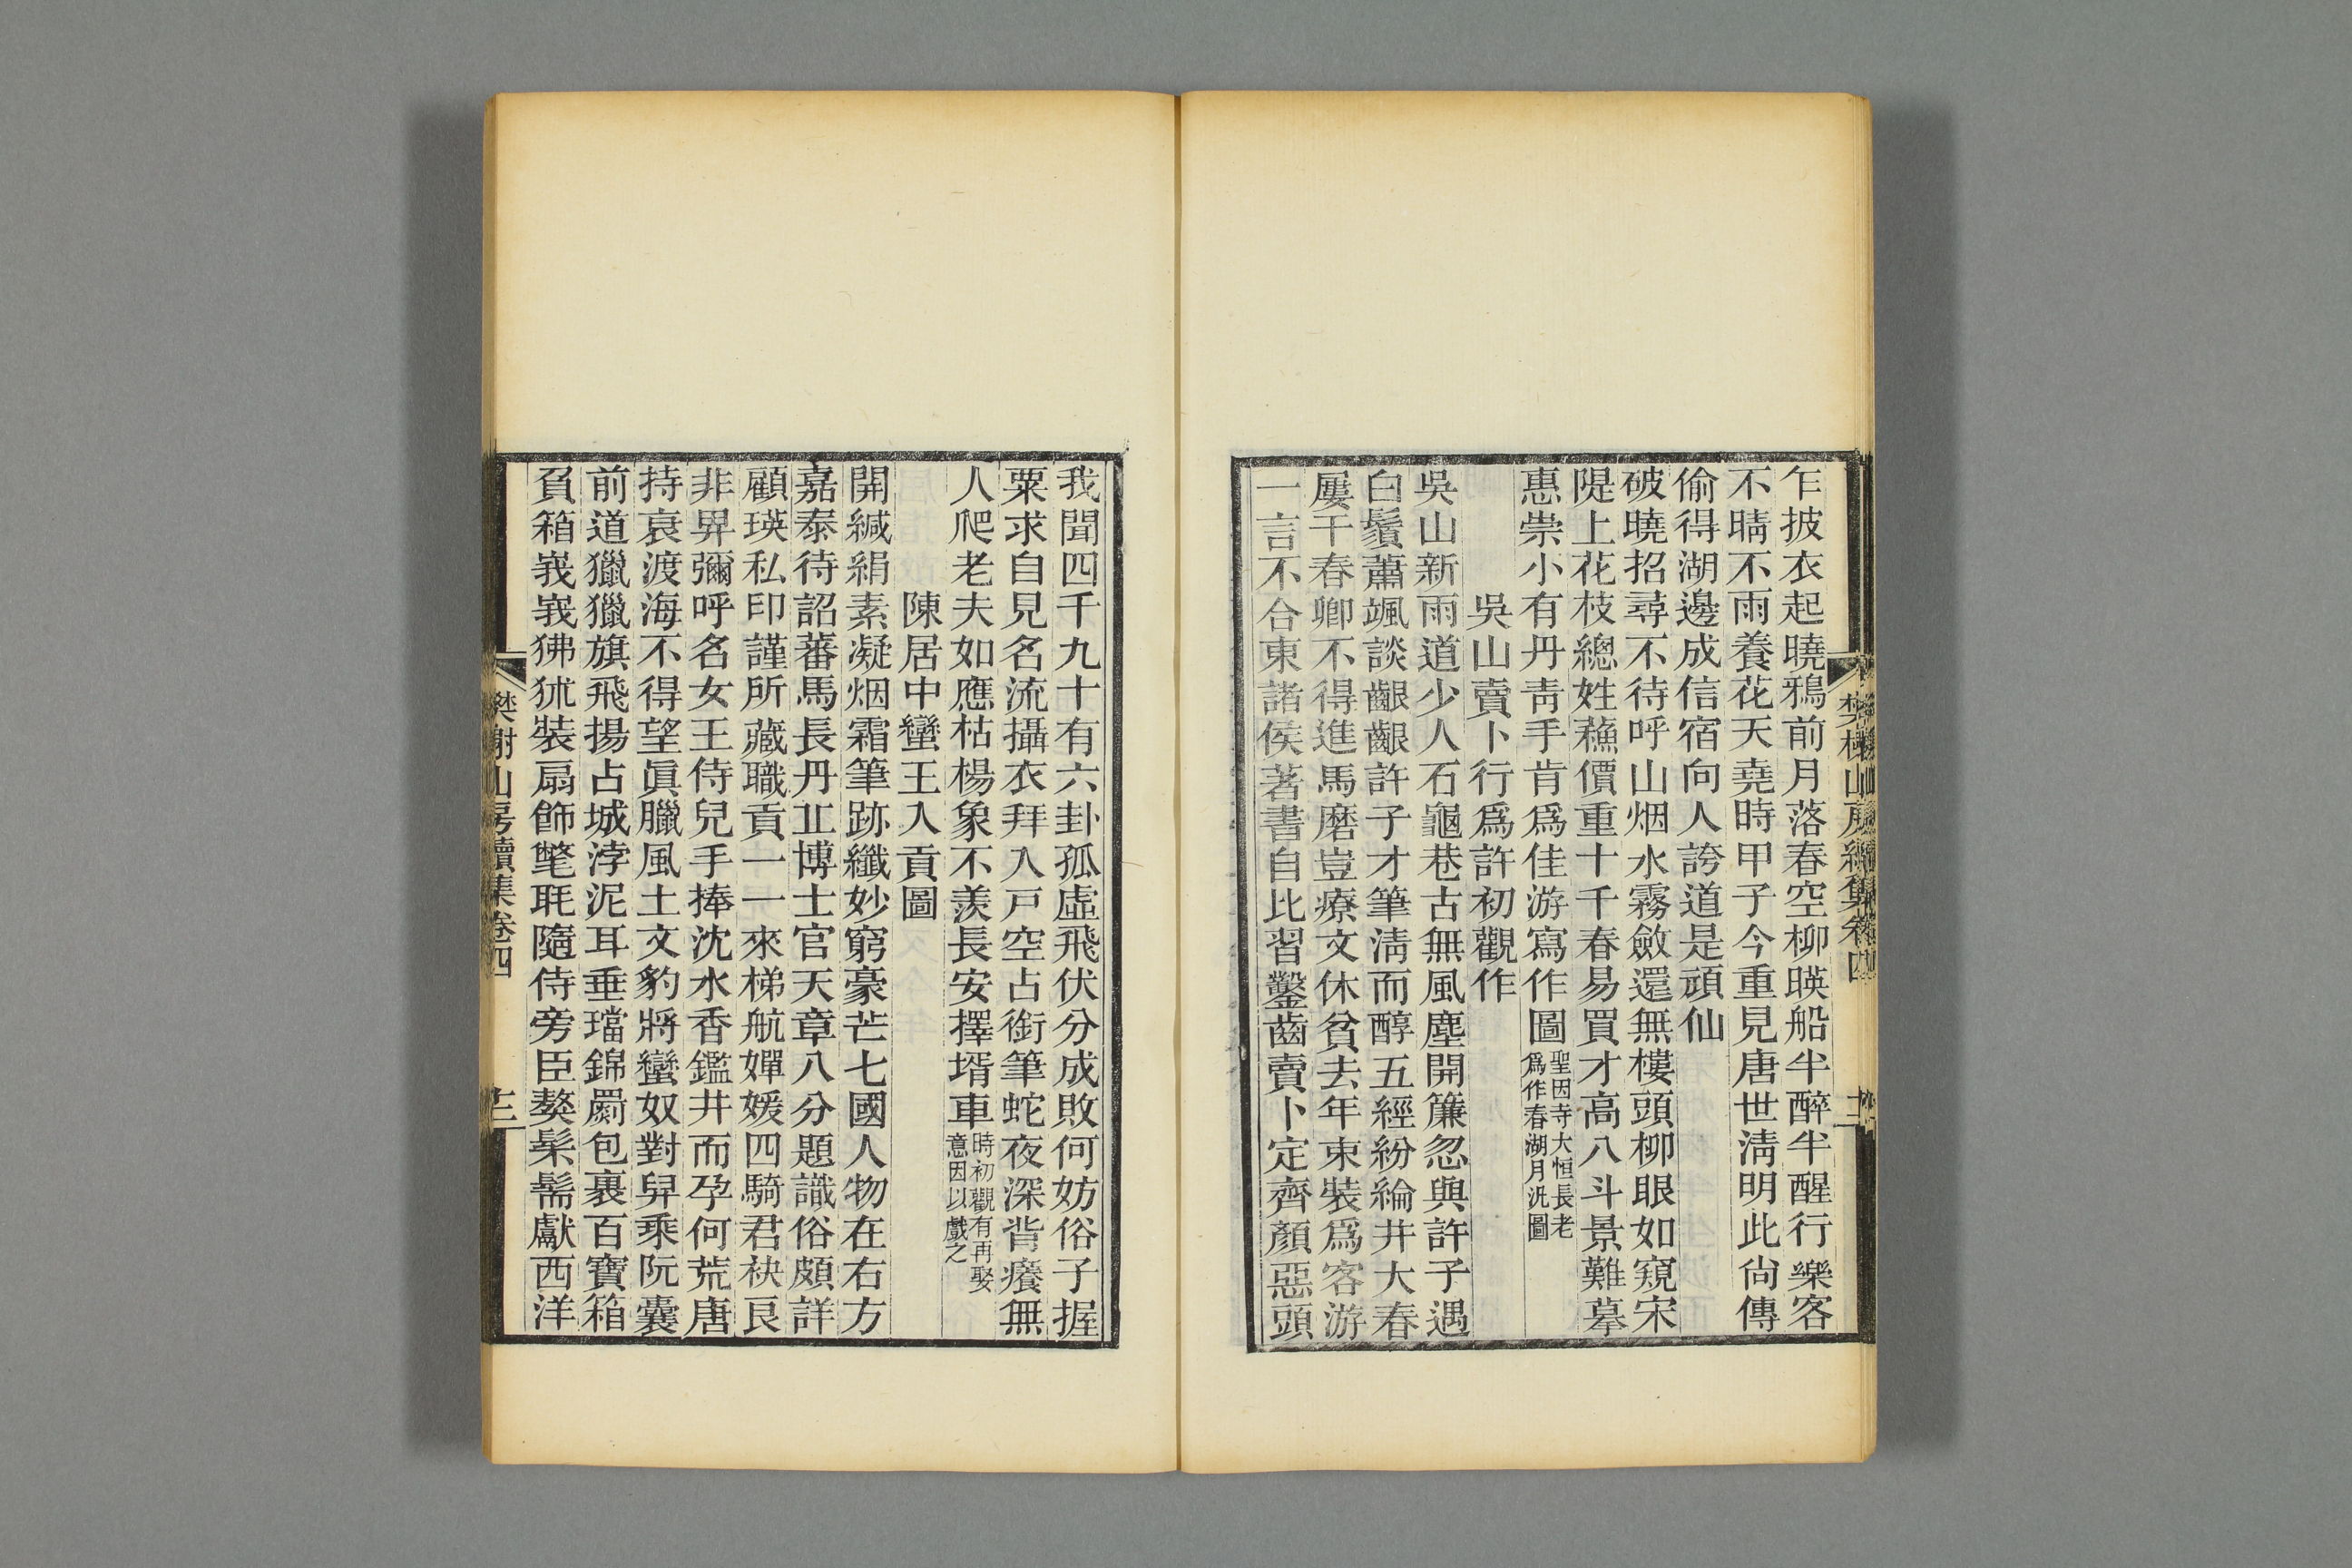 乍披衣起曉鴉前月落春空柳暎船半醉半醒行樂客
不晴不雨養花天堯時甲子今重見唐世淸明此尙傳
偷得湖邊成信宿向人誇道是頑仙
破曉招尋不待呼山烟水霧斂還無樓頭柳眼如窺宋
隄上花枝總姓蘓價重十千春易買才高八斗景難摹
惠崇小有丹靑手肯爲佳游寫作圖
聖因寺大恒長老
爲作春湖月汎圖
吳山賣卜行爲許初觀作
吳山新雨道少人石龜巷古無風塵開簾忽與許子遇
白鬚蕭颯談齦齦許子才筆淸而醇五經紛綸井大春
屢干春卿不得進馬磨豈療文休貧去年束裝爲客游
一言不合東諸侯著書自比習鑿齒賣卜定齊顏惡頭
樊榭山房續集卷四
我聞四千九十有六卦孤虛飛伏分成敗何妨俗子握
粟求自見名流攝衣拜入戸空占銜筆蛇夜深背癢無
人爬老夫如應枯楊象不羨長安擇壻車
時初觀有再娶
意因以戲之
陳居中蠻王入貢圖
開緘絹素凝烟霜筆跡纖妙窮豪芒七國人物在右方
嘉泰待詔蕃馬長丹丘博士官天章八分題識俗頗詳
顧瑛私印謹所藏職貢一一來梯航嬋媛四騎君袂良
非畀彌呼名女王侍兒手捧沈水香鑑井而孕何荒唐
持衰渡海不得望眞臘風土文豹將蠻奴對舁乘阮囊
前道獵獵旗飛揚占城浡泥耳垂璫錦罽包裹百寶箱
負箱峩峩狒狨裝扇飾氅毦隨侍旁臣獒髹髵獻西洋
樊榭山房續集卷四